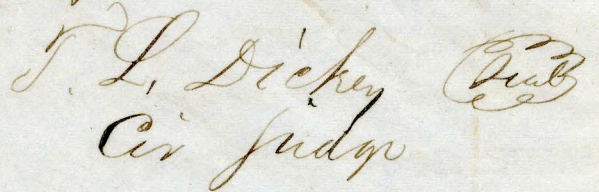 T. L. Dickey Seal
Cir Judge